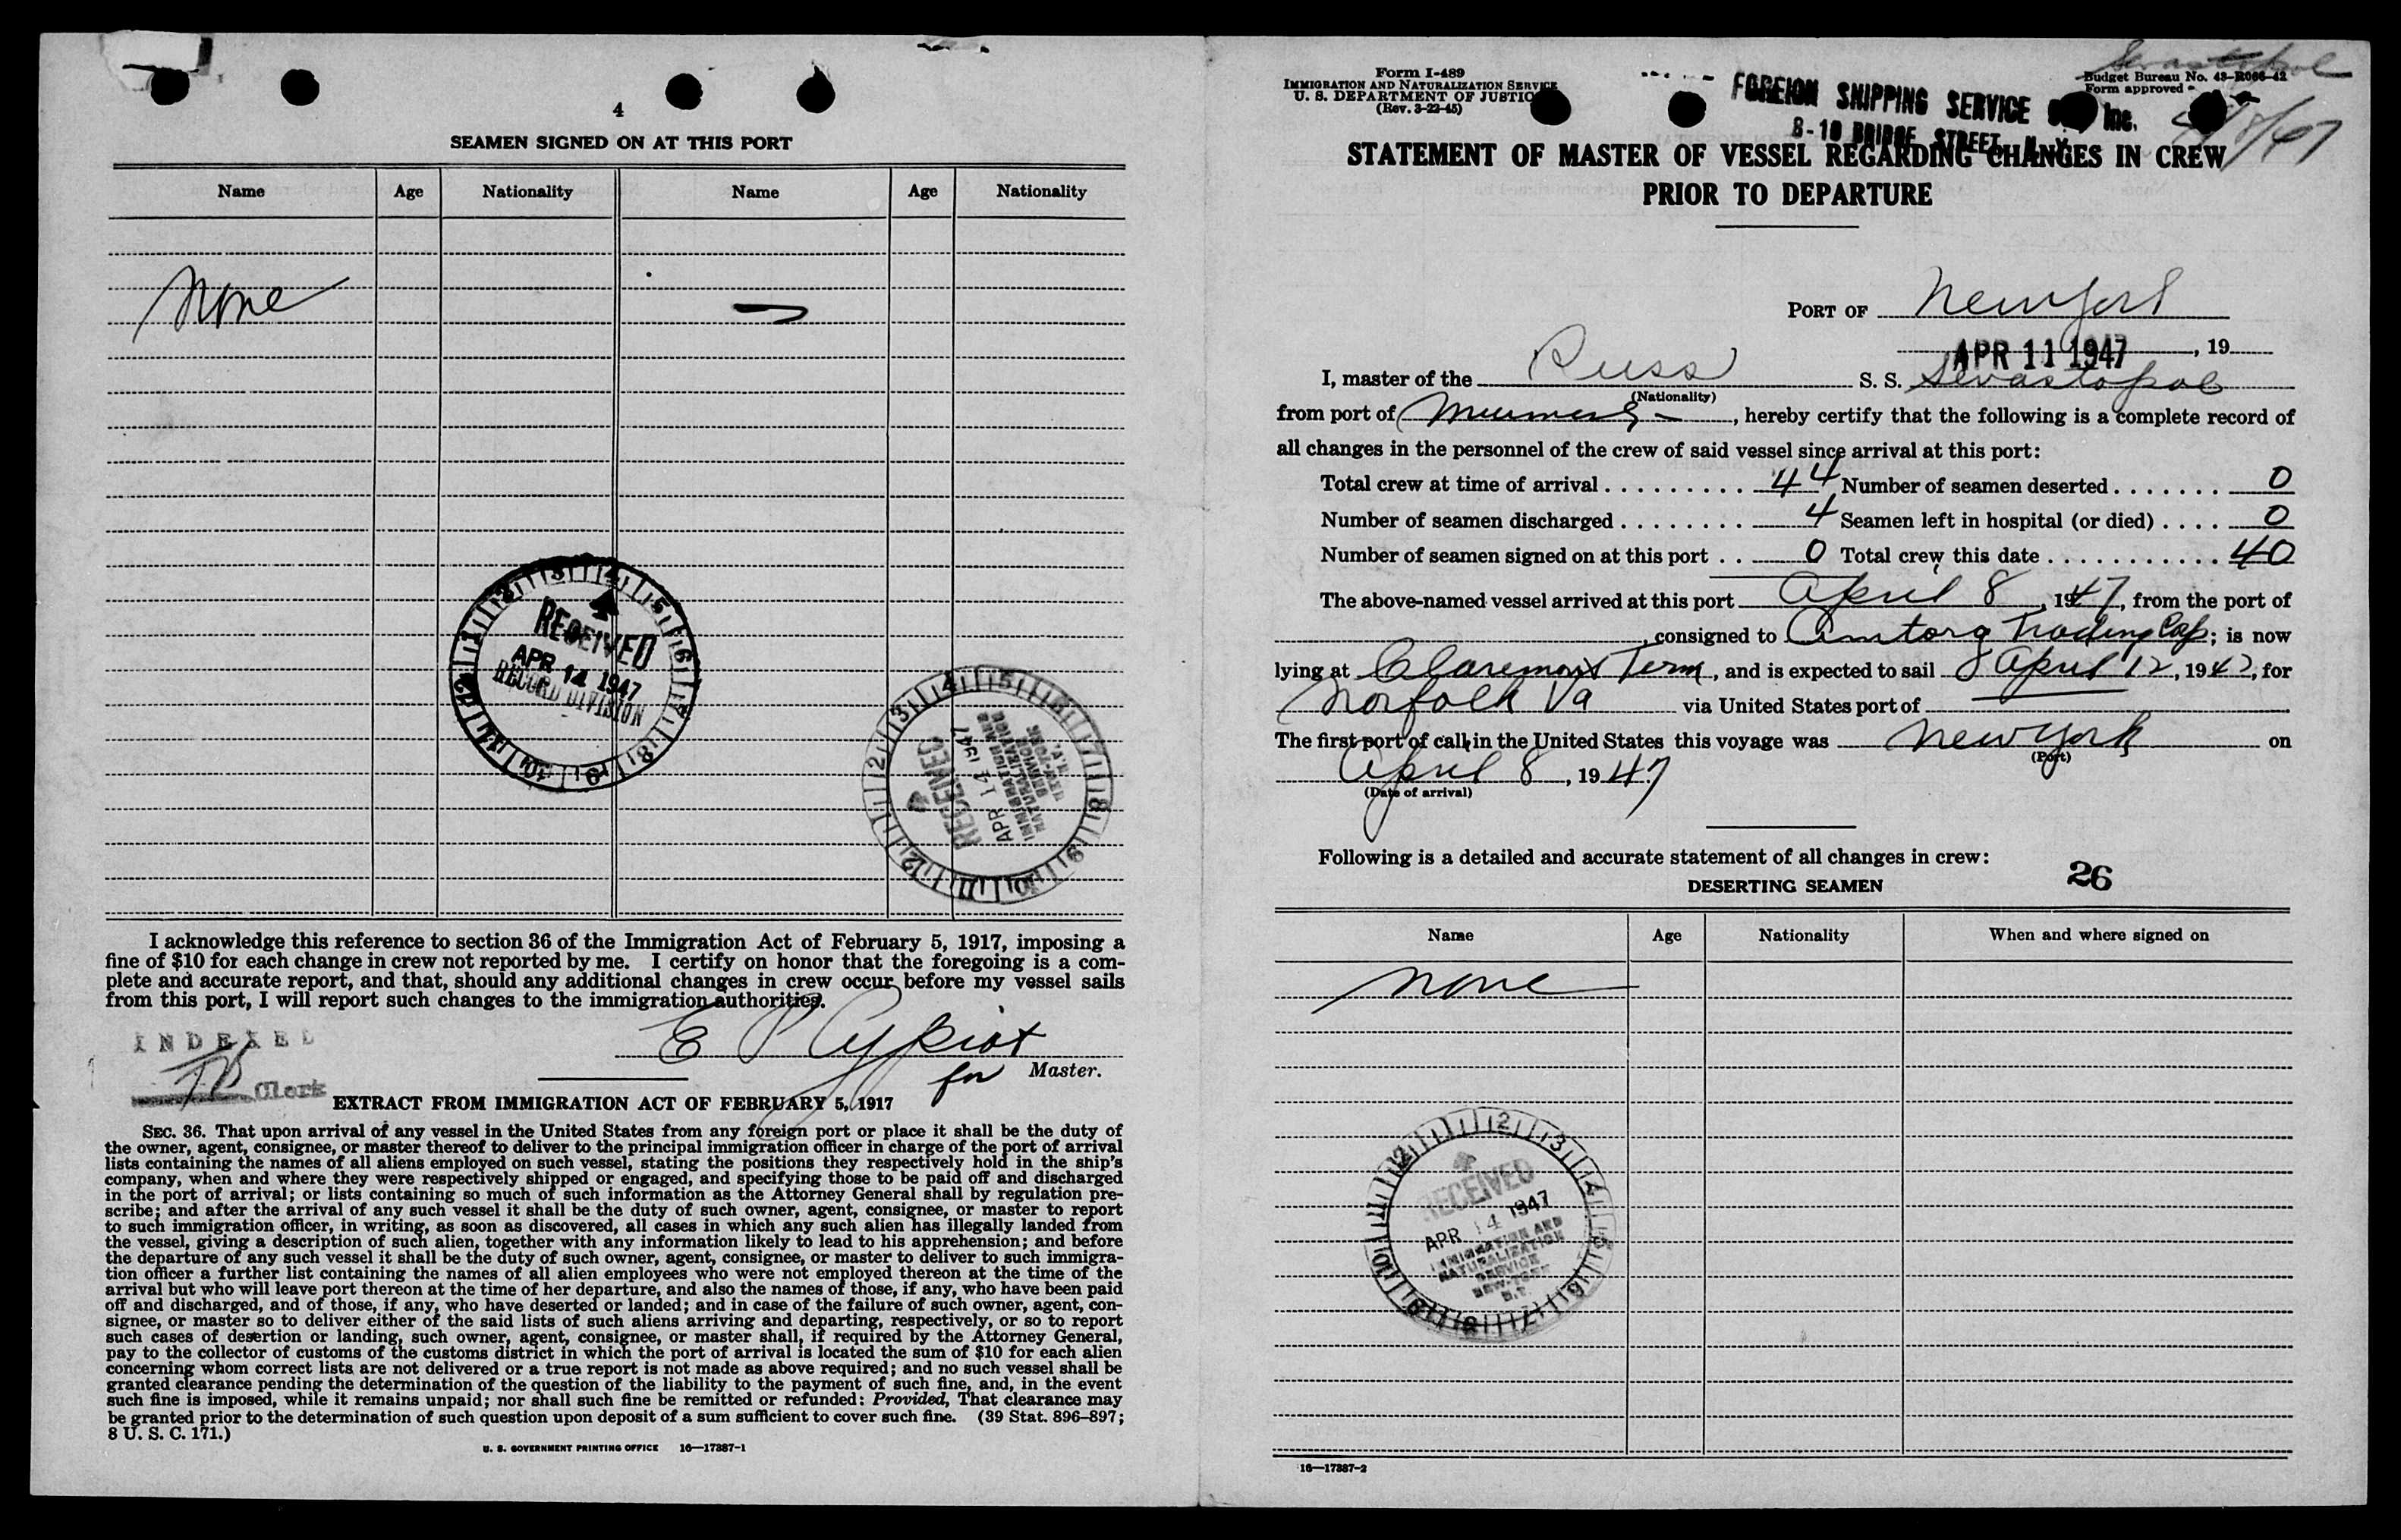 4
SEAMEN SIGNED ON AT THIS PORT
Name Age Nationality Name Age Nationality
None
RECEIVED
APR 14 1947
RECORD DIVISION
RECEIVED
APR 14 1947
IMMIGRATION AND
NATURALIZATION
SERVICE
NEW YORK
N.Y.
I acknowledge this reference to section 36 of the Immigration Act of February 5, 1917, imposing a
fine of $10 for each change in crew not reported by me. I certify on honor that the foregoing is a com-
plete and accurate report, and that, should any additional changes in crew occur before my vessel sails
from this port, I will report such changes to the immigration authorities.
INDEXED
Clerk
E P
for Master.
EXTRACT FROM IMMIGRATION ACT OF FEBRUARY 5, 1917
SEC. 36. That upon arrival of any vessel in the United States from any foreign port or place it shall be the duty of
the owner, agent, consignee, or master thereof to deliver to the principal immigration officer in charge of the port of arrival
lists containing the names of all aliens employed on such vessel, stating the positions they respectively hold in the ship's
company, when and where they were respectively shipped or engaged, and specifying those to be paid off and discharged
in the port of arrival; or lists containing so much of such information as the Attorney General shall by regulation pre-
scribe; and after the arrival of any such vessel it shall be the duty of such owner, agent, consignee, or master to report
to such immigration officer, in writing, as soon as discovered, all cases in which any such alien has illegally landed from
the vessel, giving a description of such alien, together with any information likely to lead to his apprehension; and before
the departure of any such vessel it shall be the duty of such owner, agent, consignee, or master to deliver to such immigra-
tion officer a further list containing the names of all alien employees who were not employed thereon at the time of the
arrival but who will leave port thereon at the time of her departure, and also the names of those, if any, who have been paid
off and discharged, and of those, if any, who have deserted or landed; and in case of the failure of such owner, agent, con-
signee, or master so to deliver either of the said lists of such aliens arriving and departing, respectively, or so to report
such cases of desertion or landing, such owner, agent, consignee, or master shall, if required by the Attorney General,
pay to the collector of customs of the customs district in which the port of arrival is located the sum of $10 for each alien
concerning whom correct lists are not delivered or a true report is not made as above required; and no such vessel shall be
granted clearance pending the determination of the question of the liability to the payment of such fine, and, in the event
such fine is imposed, while it remains unpaid; nor shall such fine be remitted or refunded: Provided, That clearance may
be granted prior to the determination of such question upon deposit of a sum sufficient to cover such fine. (39 Stat. 896–897;
8 U. S. C. 171.)
U. S. GOVERNMENT PRINTING OFFICE 16—17387-1
Form I-489
IMMIGRATION AND NATURALIZATION SERVICE
U. S. DEPARTMENT OF JUSTICE
(Rev. 3-22-45)
FOREIGN SHIPPING SERVICE Inc.
8-10 BRIDGE STREET, N. Y.
Sevastopol
Budget Bureau No. 43-R066-42
Form approved
4/8/47
STATEMENT OF MASTER OF VESSEL REGARDING CHANGES IN CREW
PRIOR TO DEPARTURE
PORT OF New York
APR 11 1947, 19
I, master of the Russ S. S. Sevastopol
(Nationality)
from port of , hereby certify that the following is a complete record of
all changes in the personnel of the crew of said vessel since arrival at this port:
Total crew at time of arrival . . . . . . . . . 44 Number of seamen deserted . . . . . . . 0
Number of seamen discharged . . . . . . . . 4 Seamen left in hospital (or died) . . . . 0
Number of seamen signed on at this port . . 0 Total crew this date . . . . . . . . . . . 40
The above-named vessel arrived at this port April 8, 1947, from the port of
, consigned to Amtorg Trading Corp; is now
lying at Claremont Term, and is expected to sail April 12, 1947, for
Norfolk Va via United States port of
The first port of call in the United States this voyage was New York on
(Port)
April 8, 1947
(Date of arrival)
Following is a detailed and accurate statement of all changes in crew:
26
DESERTING SEAMEN
Name Age Nationality When and where signed on
none
RECEIVED
APR 14 1947
IMMIGRATION AND
NATURALIZATION
SERVICE
NEW YORK
N.Y.
16—17387-2